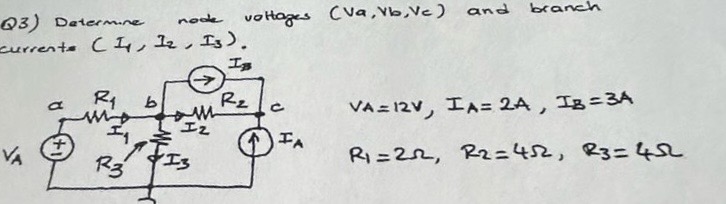 Q3) Determine node voltages (Va, Vb, Vc) and branch
currents (I1, I2, I3).
IB
a R1 b R2 c
I1 I2
VA + R3 I3 IA
VA=12V, IA=2A, IB=3A
R1=2Ω, R2=4Ω, R3=4Ω